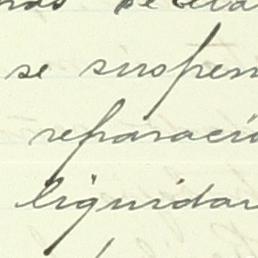 se suspen
reparació
liquidar